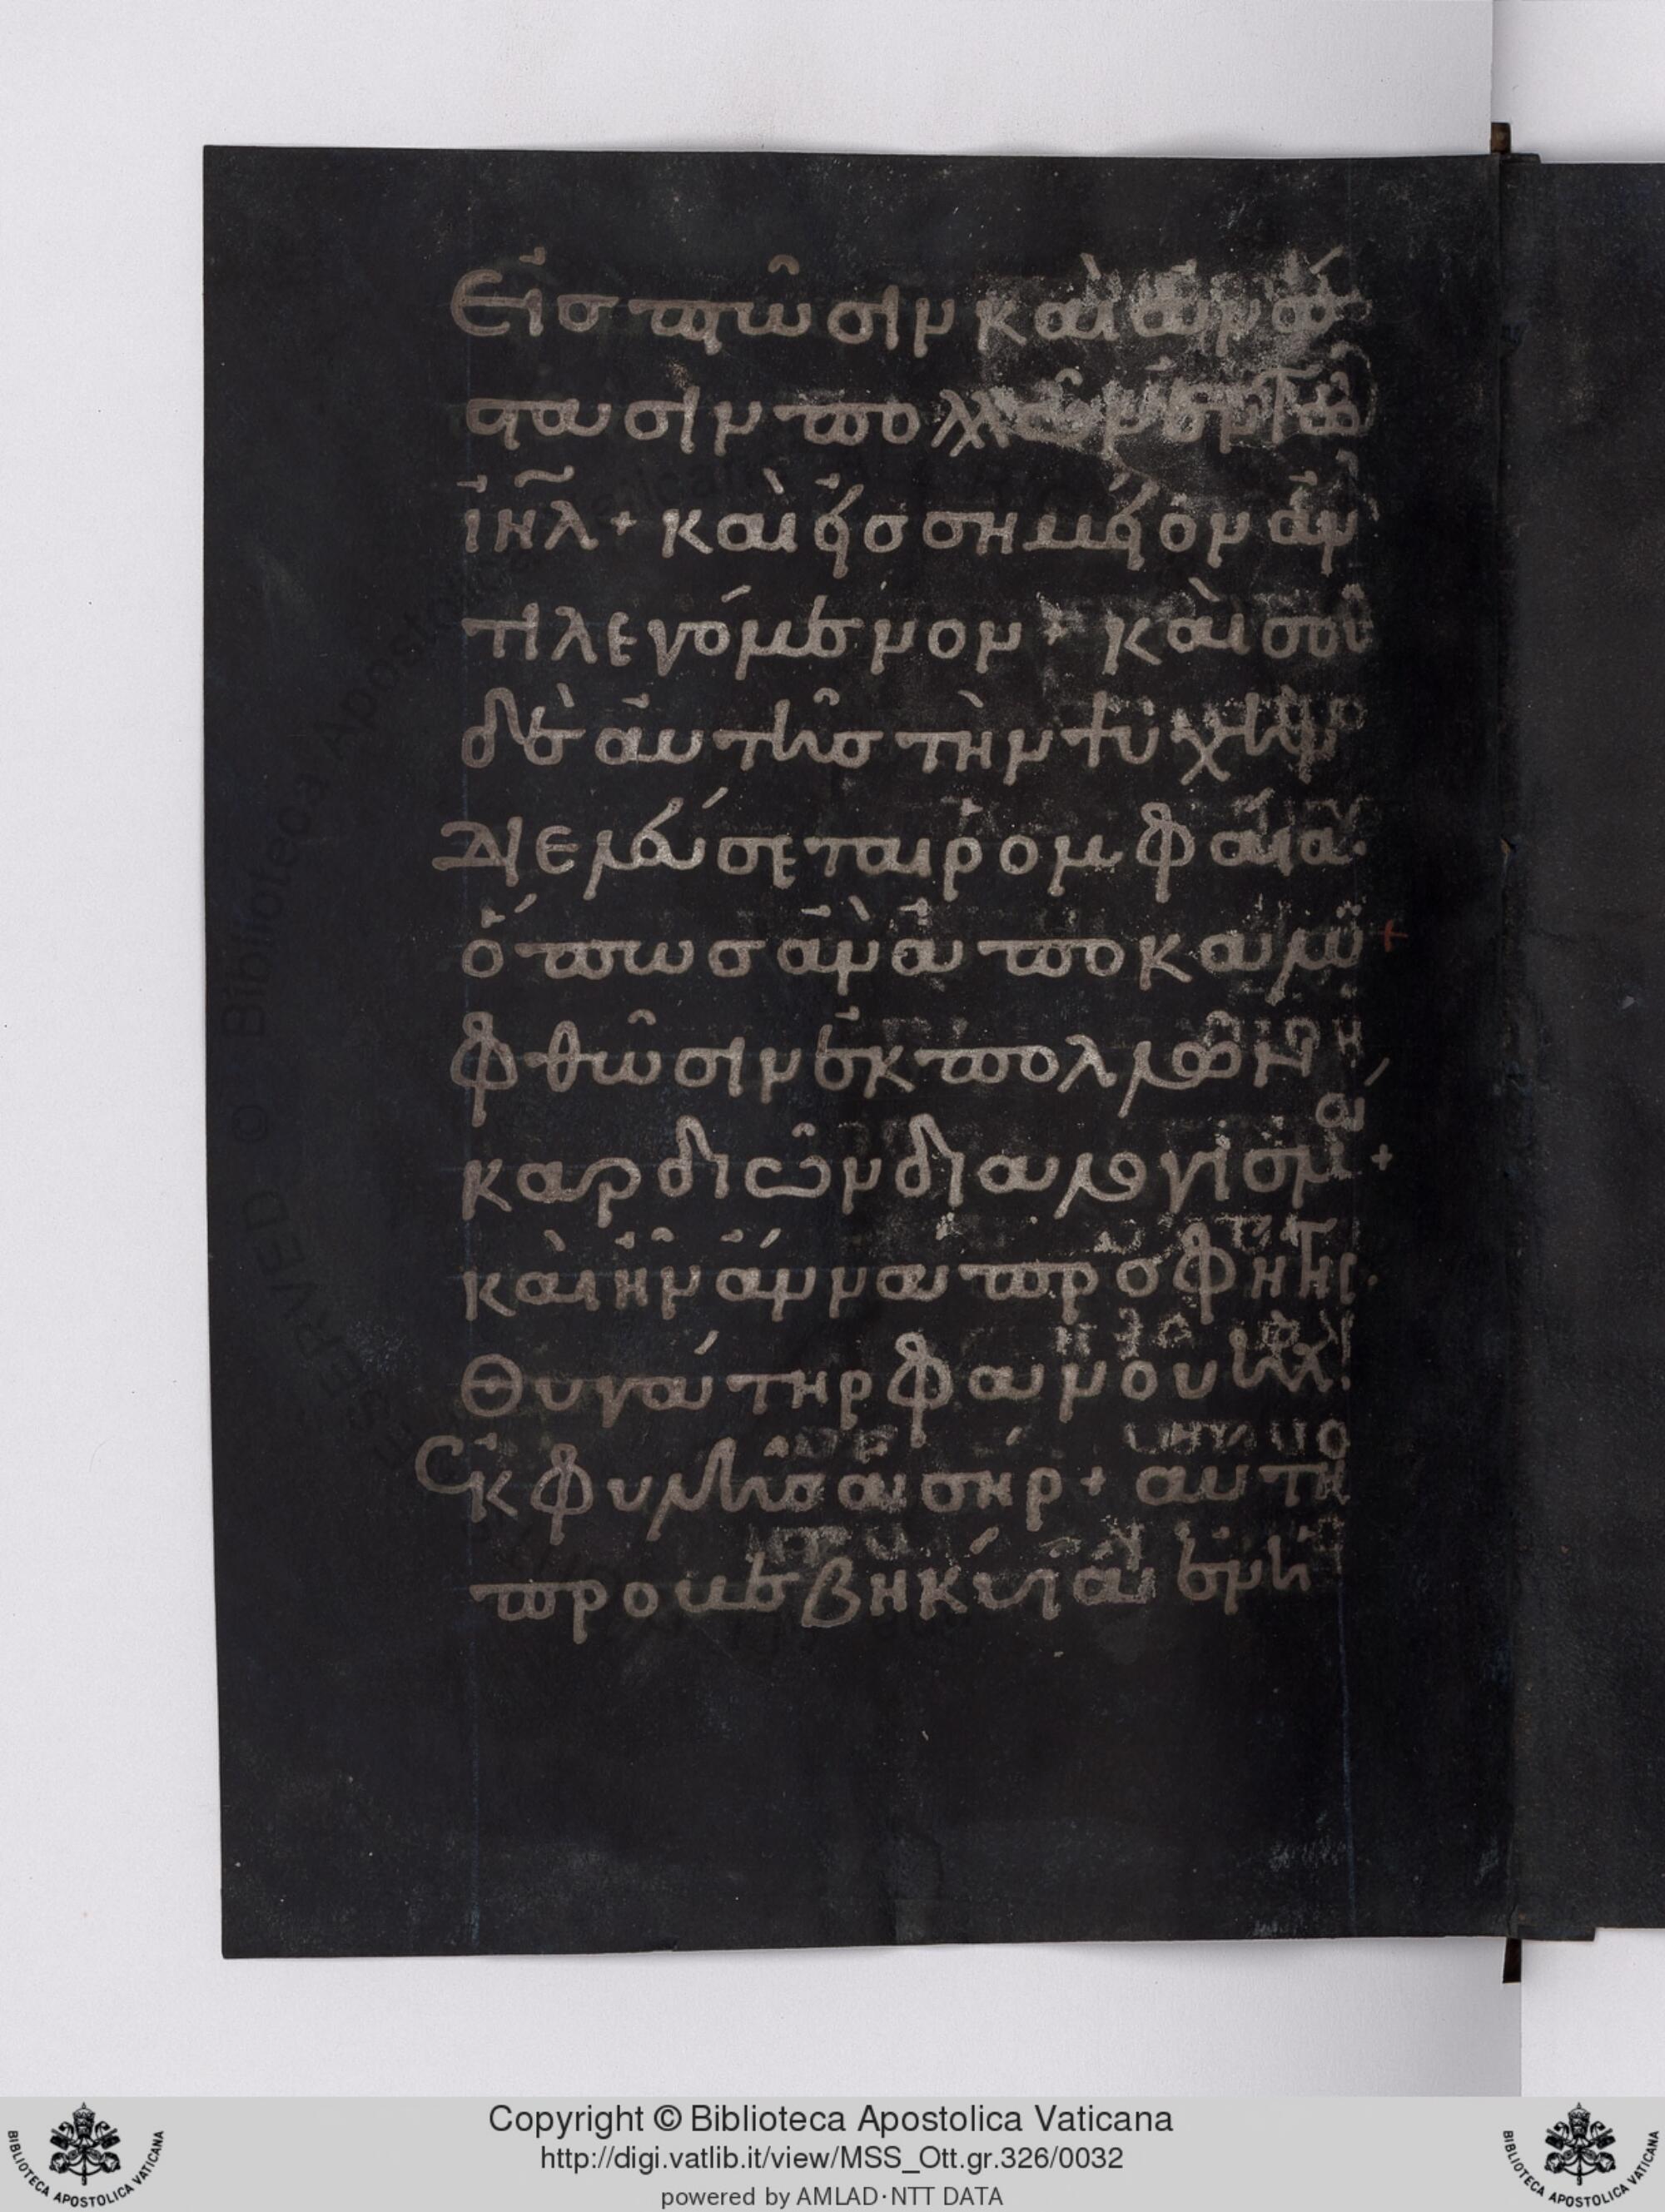 Εἰσ πτῶσιν καὶ ἀνά
στασιν πολλῶν ἐν τῶ
ἰη̃λ + καὶ εἰσ σημεῖον ἀν
τιλεγόμενον + καὶ σοῦ
δὲ ἀυτῆσ τὴν ψυχὴν
Διελεύσεται ρομφαία.
ὅπωσ ἀν ἀποκαλυ
φθῶσιν ἐκ πολλῶν
καρδιῶν διαλογισμοί +
καὶ ἦν ἄννα προφῆτις.
Θυγάτηρ φανουὴλ.
Ἐκ φυλῆσ ἀσήρ + αυτη
προβεβηκυῖα ἐν ἡ
Copyright © Biblioteca Apostolica Vaticana
http://digi.vatlib.it/view/MSS_Ott.gr.326/0032
powered by AMLAD·NTT DATA
BIBLIOTECA APOSTOLICA VATICANA
BIBLIOTECA APOSTOLICA VATICANA